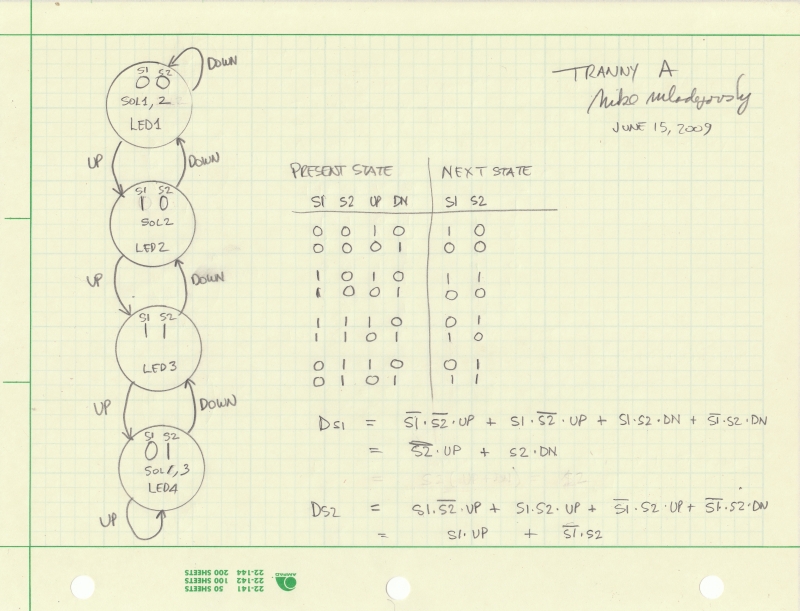 TRANNY A
Mike Mladejovsky
JUNE 15, 2009
DOWN
S1 S2
0 0
SOL1, 2
LED1
UP DOWN
S1 S2
1 0
SOL2
LED2
UP DOWN
S1 S2
1 1
LED3
UP DOWN
S1 S2
0 1
SOL1,3
LED4
UP
PRESENT STATE NEXT STATE
S1 S2 UP DN S1 S2
0 0 1 0 1 0
0 0 0 1 0 0
1 0 1 0 1 1
1 0 0 1 0 0
1 1 1 0 0 1
1 1 0 1 1 0
0 1 1 0 0 1
0 1 0 1 1 1
DS1 = S̅1̅·S̅2̅·UP + S1·S̅2̅·UP + S1·S2·DN + S̅1̅·S2·DN
= S̅2̅·UP + S2·DN
DS2 = S1·S̅2̅·UP + S1·S2·UP + S̅1̅·S2·UP + S̅1̅·S2·DN
= S1·UP + S̅1̅·S2
22-141 50 SHEETS
22-142 100 SHEETS
22-144 200 SHEETS
AMPAD